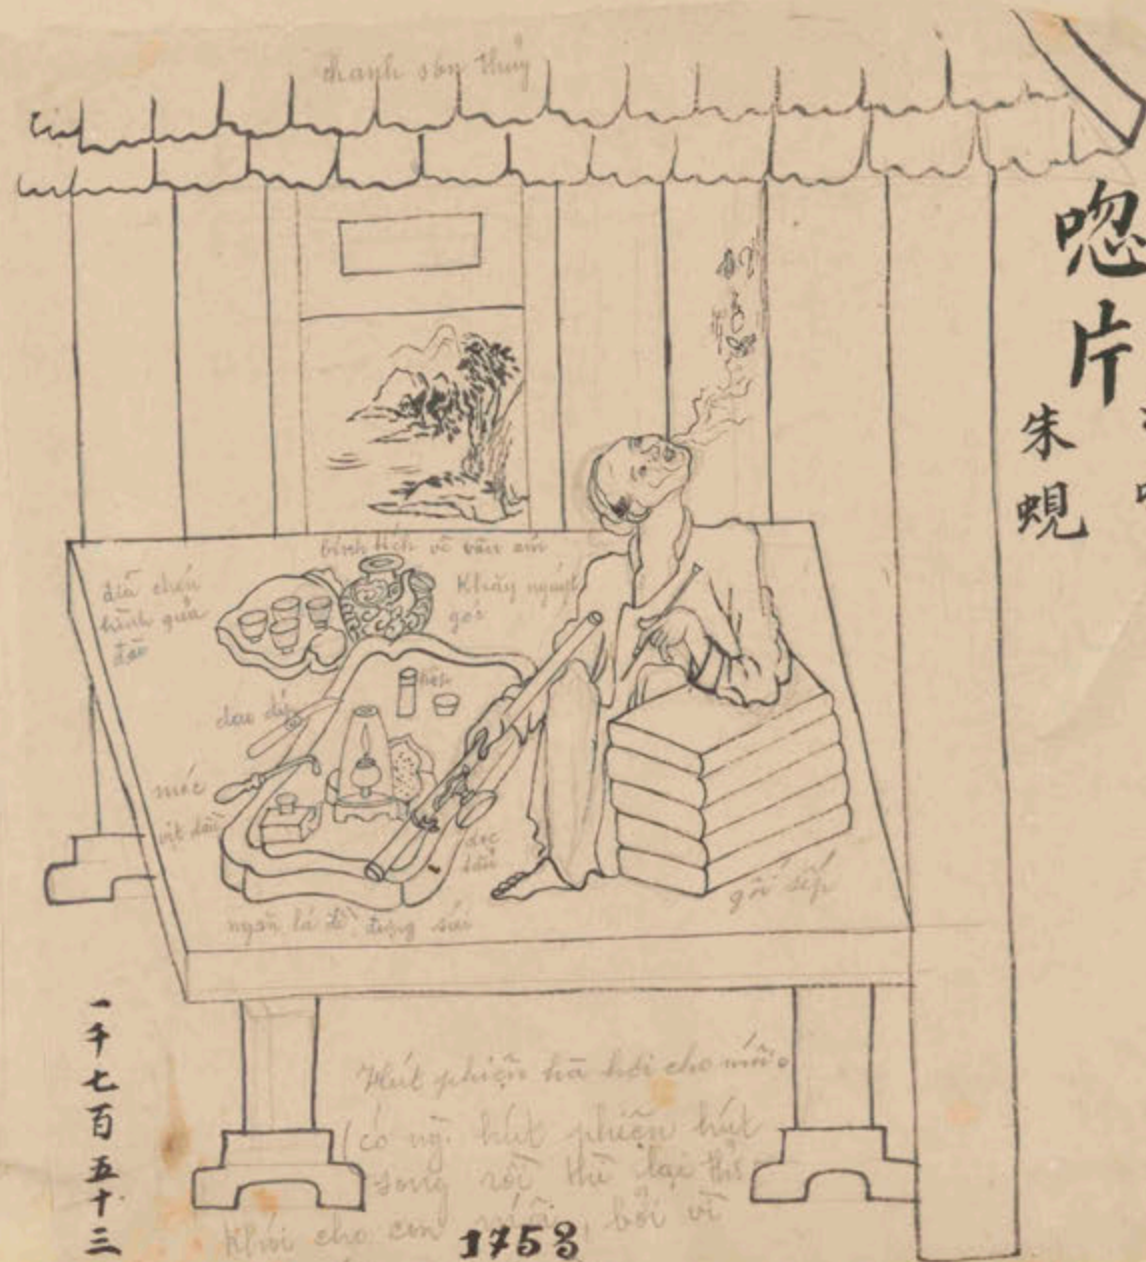 tranh sơn thủy
唿片
朱蜆
bình tích vẽ vân
đĩa chén
hình quả
đào
Khay nguyệt
gói
dao
móc
dọc
tẩu
gối xếp
ngăn lá đề đựng sái
一千七百五十三
Hút phiện hà hơi cho mũi
(có ng. hút phiện hút
song rồi thì lại thở
khói cho con, bởi vì
1753